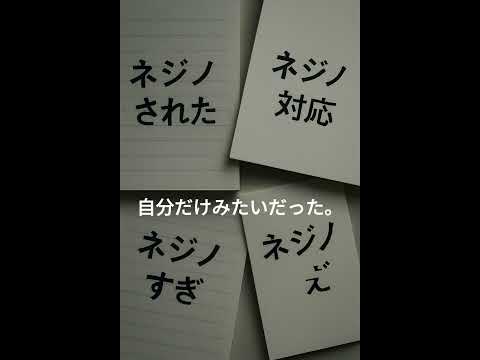 ネジノ
された
ネジノ
対応
自分だけみたいだった。
ネジノ
すぎ
ネジノ